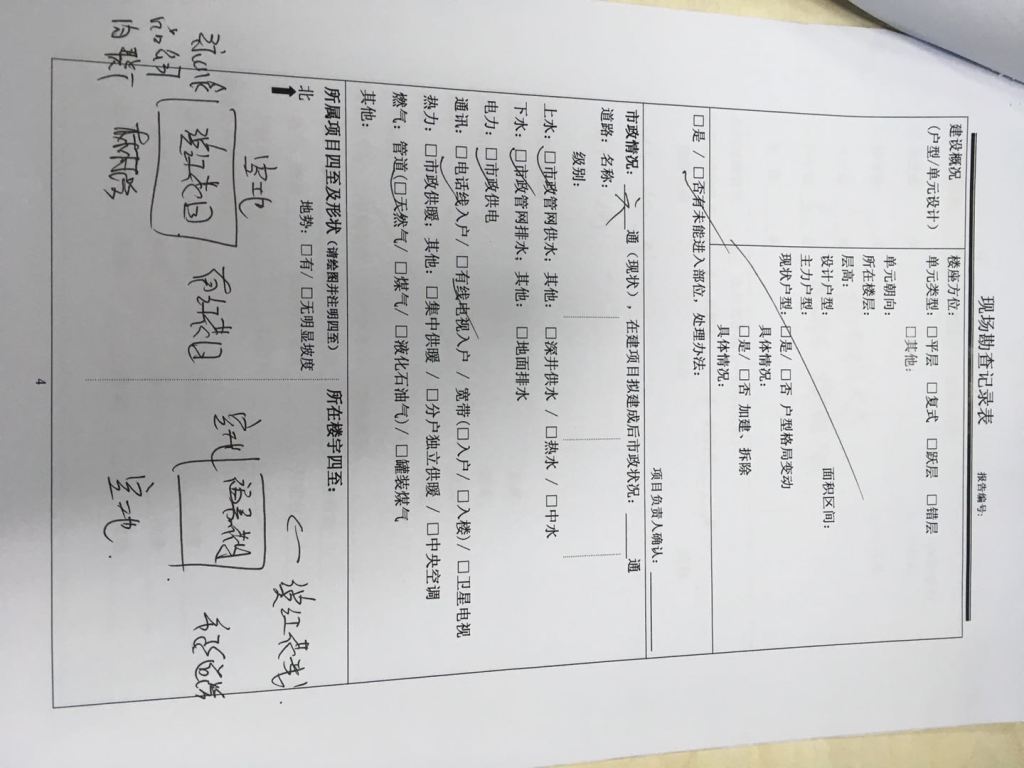 现场勘查记录表
报告编号:
建设概况
(户型/单元设计)
楼座方位:
单元类型: □平层 □复式 □跃层 □错层
□其他:
单元朝向:
所在楼层:
层高:
设计户型: 面积区间:
主力户型:
现状户型: □是/ □否 户型格局变动
具体情况:
□是/ □否 加建、拆除
具体情况:
□是 / □否有未能进入部位, 处理办法:
项目负责人确认:
市政情况: 六 通 (现状), 在建项目拟建成后市政状况: 通
道路: 名称:
级别:
上水: □市政管网供水; 其他: □深井供水 / □热水 / □中水
下水: □市政管网排水; 其他: □地面排水
电力: □市政供电
通讯: □电话线入户/ □有线电视入户 / 宽带(□入户/ □入楼)/ □卫星电视
热力: □市政供暖; 其他: □集中供暖 / □分户独立供暖 / □中央空调
燃气: 管道(□天然气/ □煤气/ □液化石油气)/ □罐装煤气
其他:
所属项目四至及形状 (请绘图并注明四至)
所在楼宇四至:
北
地势: □有/ □无明显坡度
空地
空地
空地
4